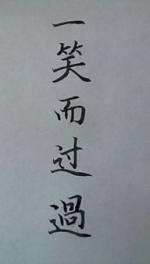 一笑而过過